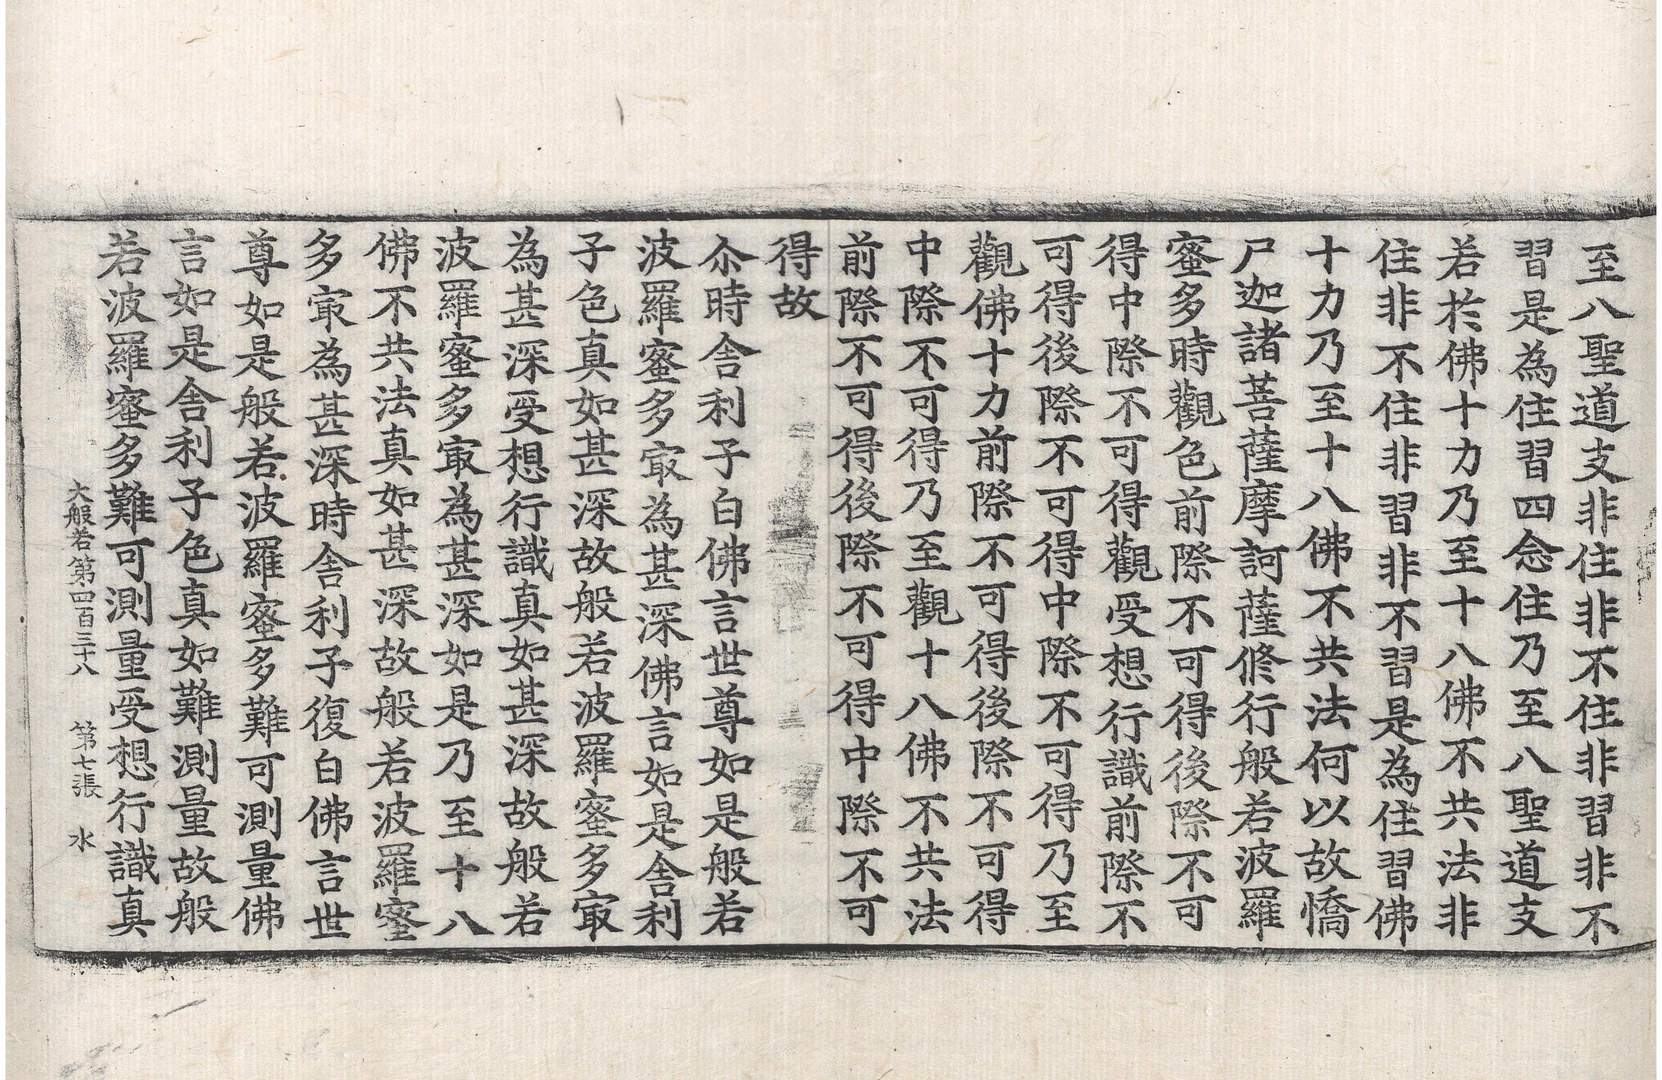 至八聖道支非住非不住非習非不
習是為住習四念住乃至八聖道支
若於佛十力乃至十八佛不共法非
住非不住非習非不習是為住習佛
十力乃至十八佛不共法何以故憍
尸迦諸菩薩摩訶薩修行般若波羅
蜜多時觀色前際不可得後際不可
得中際不可得觀受想行識前際不
可得後際不可得中際不可得乃至
觀佛十力前際不可得後際不可得
中際不可得乃至觀十八佛不共法
前際不可得後際不可得中際不可
得故
尒時舍利子白佛言世尊如是般若
波羅蜜多㝡為甚深佛言如是舍利
子色真如甚深故般若波羅蜜多㝡
為甚深受想行識真如甚深故般若
波羅蜜多㝡為甚深如是乃至十八
佛不共法真如甚深故般若波羅蜜
多㝡為甚深時舍利子復白佛言世
尊如是般若波羅蜜多難可測量佛
言如是舍利子色真如難測量故般
若波羅蜜多難可測量受想行識真
大般若第四百三十八 第七張 水